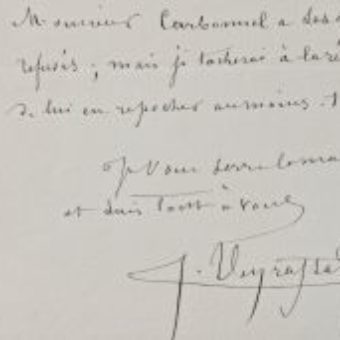 Monsieur Carbonnel a ses
refusés ; mais je tacherai à la
de lui en repocher au moins
Je vous serre la ma
et suis tout à vous
J. Veyrassa